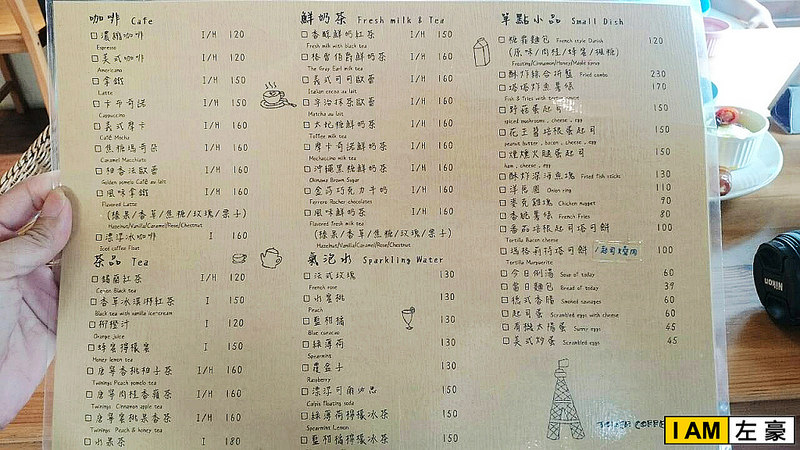 咖啡 Cafe
濃縮咖啡 I/H 120
Espresso
美式咖啡 I/H 120
Americano
拿鐵 I/H 150
Latte
卡布奇諾 I/H 150
Cappuccino
義式摩卡 I/H 160
Café Mocha
焦糖瑪奇朵 I/H 160
Caramel Macchiato
柚香法歐蕾 I/H 160
Golden pomelo Café au lait
風味拿鐵 I/H 160
Flavored Latte
(榛果/香草/焦糖/玫瑰/栗子)
Hazelnut/Vanilla/Caramel/Rose/Chestnut
漂浮冰咖啡 I 160
Iced coffee Float
茶品 Tea
錫蘭紅茶 I/H 120
Ceylon Black tea
香草冰淇淋紅茶 I 150
Black tea with vanilla ice-cream
柳橙汁 I 120
Orange juice
蜂蜜檸檬蜜 I 150
Honey lemon tea
唐寧香桃柚子茶 I/H 160
Twinings Peach pomelo tea
唐寧肉桂香蘋茶 I/H 160
Twinings Cinnamon apple tea
唐寧蜜桃果香茶 I/H 160
Twinings Peach & honey tea
水果茶 I 180
鮮奶茶 Fresh milk & Tea
香醇鮮奶紅茶 I/H 150
Fresh milk with black tea
格雷伯爵鮮奶茶 I/H 160
The Gray Earl milk tea
義式可可歐蕾 I/H 160
Italian cocoa au lait
宇治抹茶歐蕾 I/H 160
Matcha au lait
太妃糖鮮奶茶 I/H 160
Toffee milk tea
摩卡奇諾鮮奶茶 I/H 160
Mochaccino milk tea
沖繩黑糖鮮奶茶 I/H 160
Okinawa Brown Sugar
金莎巧克力牛奶 I/H 160
Ferrero Rocher chocolates
風味鮮奶茶 I/H 160
Flavored Fresh milk tea
(榛果/香草/焦糖/玫瑰/栗子)
Hazelnut/Vanilla/Caramel/Rose/Chestnut
氣泡水 Sparkling Water
法式玫瑰 130
French rose
水蜜桃 130
Peach
藍柑橘 130
Blue curacao
綠薄荷 130
Spearmint
覆盆子 130
Raspberry
漂浮可爾必思 150
Calpis floating soda
綠薄荷檸檬冰茶 150
Spearmint Lemon
藍柑橘檸檬冰茶 150
單點小品 Small Dish
糖霜麵包 French style Danish 120
(原味/肉桂/蜂蜜/楓糖)
Frosting/Cinnamon/Honey/Maple syrup
酥炸綜合拼盤 Fried combo 230
塔塔炸魚薯條 170
Fish & fries with tartar sauce
野菇蛋起司 150
spiced mushrooms, cheese, egg
花生醬培根蛋起司 150
peanut butter, bacon, cheese, egg
煙燻火腿蛋起司 150
ham, cheese, egg
酥炸深海魚塊 Fried fish sticks 130
洋蔥圈 Onion ring 110
麥克雞塊 Chicken nugget 90
香脆薯條 French Fries 80
番茄培根起司塔可餅 100
Tortilla Bacon cheese
瑪格莉特塔可餅 /起司燒肉 100
Tortilla Margherita
今日例湯 Soup of today 60
當日麵包 Bread of today 39
德式香腸 Smoked sausages 60
起司蛋 Scrambled eggs with cheese 60
有機太陽蛋 Sunny eggs 45
美式炒蛋 Scrambled eggs 45
TOWER COFFEE
Nikon
I AM 左豪